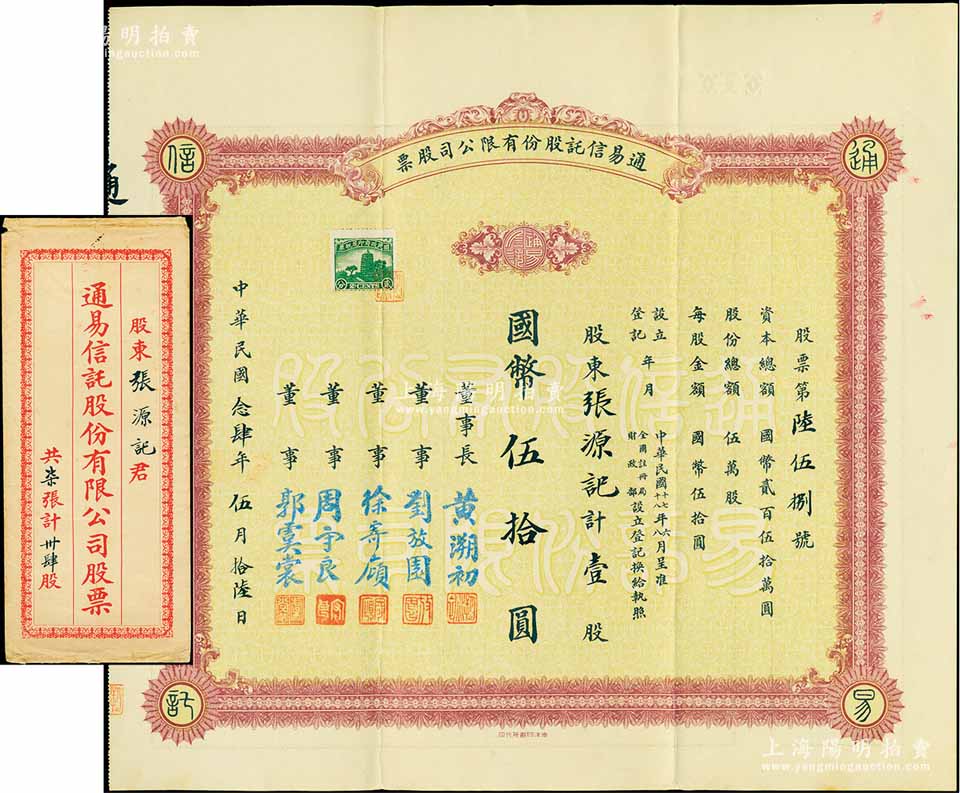 通易信託股份有限公司股票
通
易
信
託
股票第陸伍捌號
資本總額 國幣貳百伍拾萬圓
股份總額 伍萬股
每股金額 國幣伍拾圓
設立 登記 年月 中華民國十七年六月呈准全國註冊局 十八年八月 財政部 設立登記換給執照
股東張源記計壹股
國幣伍拾圓
董事長 黃溯初
董事 劉放園
董事 徐寄廎
董事 周守良
董事 郭虞裳
中華民國念肆年伍月拾陸日
貳分
2 CENTS
通
股東張源記君
通易信託股份有限公司股票
共柒張計卅肆股
上海陽明拍賣
www.yangmingauction.com
上海陽明拍賣
www.yangmingauction.com
陽明拍賣
yangmingauction.com